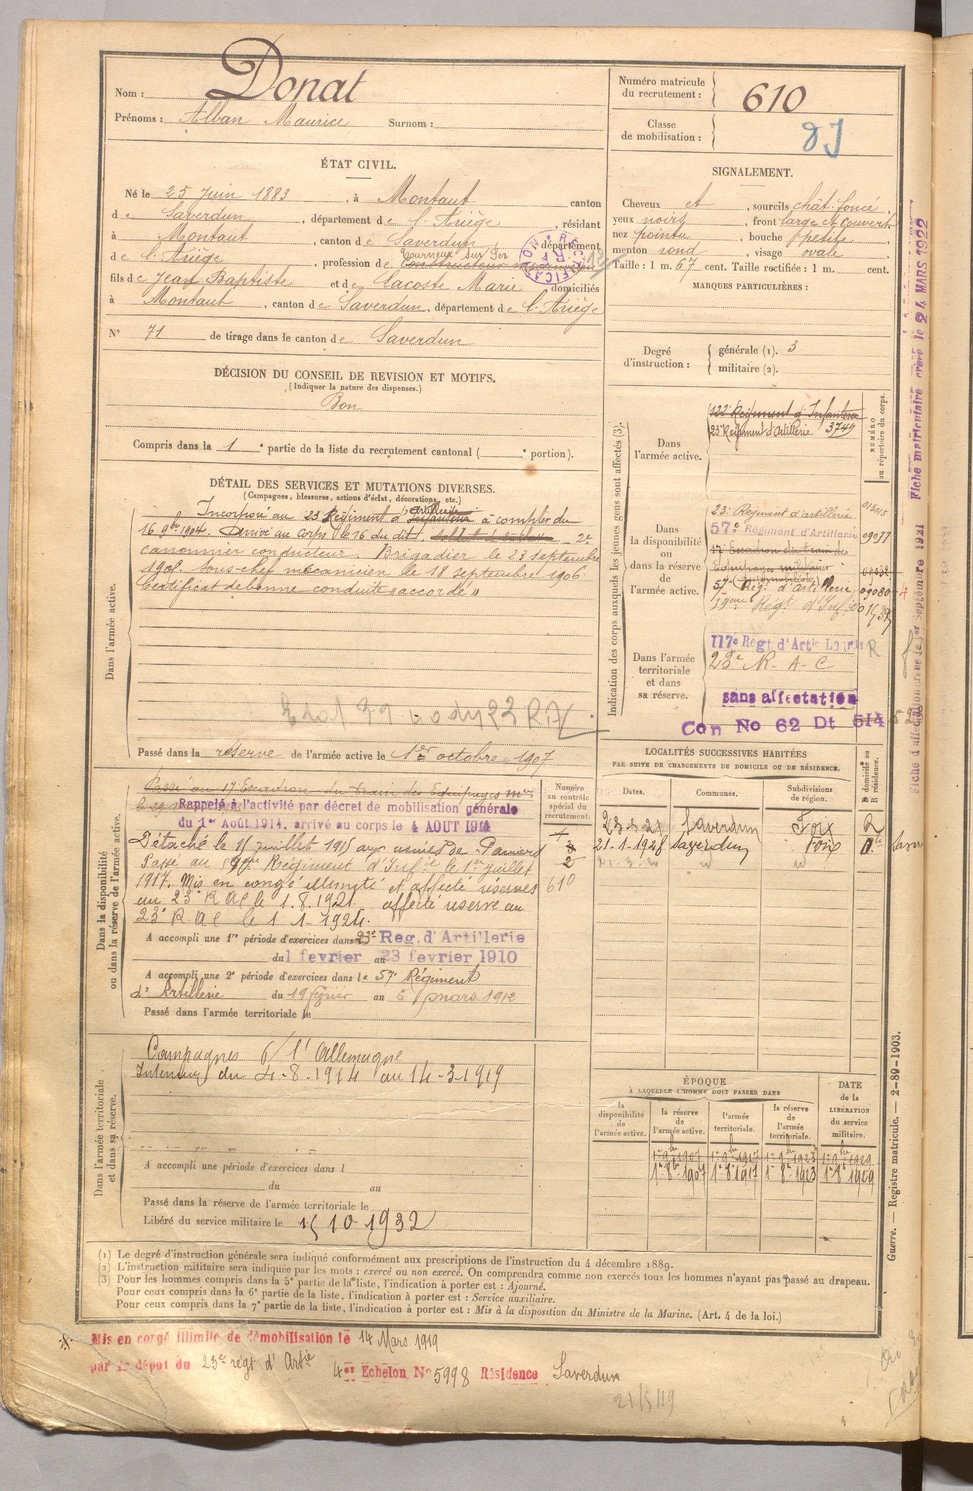 Nom : Donat
Prénoms : Alban Maurice Surnom :
Numéro matricule du recrutement : 610
Classe de mobilisation :
ÉTAT CIVIL.
Né le 25 Juin 1883, à Montaut canton
de Saverdun, département de l'Ariège, résidant
à Montaut, canton de Saverdun, département
de l'Ariège, profession de Tourneur sur fer
RECTIFICATION
fils de Jean Baptiste et de Lacoste Marie, domiciliés
à Montaut, canton de Saverdun, département de l'Ariège
N° 71 de tirage dans le canton de Saverdun
SIGNALEMENT.
Cheveux et, sourcils chât. foncé
yeux noirs, front large et couvert
nez pointu, bouche petite
menton rond, visage ovale
Taille : 1 m. 67 cent. Taille rectifiée : 1 m. cent.
MARQUES PARTICULIÈRES :
Degré d'instruction : générale (1). 3
militaire (2).
DÉCISION DU CONSEIL DE REVISION ET MOTIFS.
(Indiquer la nature des dispenses.)
Bon
Compris dans la 1e partie de la liste du recrutement cantonal ( e portion).
DÉTAIL DES SERVICES ET MUTATIONS DIVERSES.
(Campagnes, blessures, actions d'éclat, décorations, etc.)
Dans l'armée active.
Incorporé au 23 Régiment d'artillerie à compter du
16 9bre 1904. Arrivé au corps le 16 du dit. 2e
canonnier conducteur. Brigadier le 23 septembre
Sous-chef mécanicien le 18 septembre 1906.
Certificat de bonne conduite "accordé"
Passé dans la réserve de l'armée active le 1er octobre 1907
Indication des corps auxquels les jeunes gens sont affectés (3).
NUMÉRO au répertoire du corps.
Dans l'armée active.
122e Régiment d'Infanterie
23 Régiment d'Artillerie 3749
Dans la disponibilité ou dans la réserve de l'armée active.
23e Régiment d'artillerie
57e Régiment d'Artillerie
17e Escadron du train des
équipages militaires
(Automobiliste)
57e Régt d'Artillerie
Régt d'Inf.
Dans l'armée territoriale et dans sa réserve.
117e Régt d'Artie Lourde
23e R.A.C
sans affectation
Con No 62 Dt 514
Fiche matriculaire créée le 24 MARS 1922
Dans la disponibilité ou dans la réserve de l'armée active.
Passé au 17 Escadron du Train des Equipages mres
Rappelé à l'activité par décret de mobilisation générale
du 1er Août 1914, arrivé au corps le 4 AOUT 1914
Détaché le 15 juillet 1915 aux usines de Pamiers
Passé au Régiment d'Infie le 1er juillet
1917. Mis en congé illimité et affecté réserves
au 23e RAC le 1.8.1921. affecté réserve au
23e RAC le 1.1.1924.
A accompli une 1re période d'exercices dans 23e Reg. d'Artillerie
du 1 fevrier au 23 fevrier 1910
A accompli une 2e période d'exercices dans le 57e Régiment
d'Artillerie du 19 février au 6 mars 1912
Passé dans l'armée territoriale le
Numéro au contrôle spécial du recrutement.
610
LOCALITÉS SUCCESSIVES HABITÉES
PAR SUITE DE CHANGEMENTS DE DOMICILE OU DE RÉSIDENCE.
Dates. Communes. Subdivisions de région. D domicile ou R résidence.
Saverdun Foix R
21-1-1928 Saverdun Foix D
Dans l'armée territoriale et dans sa réserve.
Campagnes c/ l'Allemagne
Intérieur du 4.8.1914 au 14-3-1919
A accompli une période d'exercices dans l
du au
Passé dans la réserve de l'armée territoriale le
Libéré du service militaire le 15 10 1932
ÉPOQUE
À LAQUELLE L'HOMME DOIT PASSER DANS
la disponibilité de l'armée active. la réserve de l'armée active. l'armée territoriale. la réserve de l'armée territoriale. DATE de la LIBÉRATION du service militaire.
1er 9bre 1907 1er 9bre 1917 1er 9bre 1923 1er 9bre 1929
Guerre. — Registre matricule. — 2-89-1903.
(1) Le degré d'instruction générale sera indiqué conformément aux prescriptions de l'instruction du 4 décembre 1889.
(2) L'instruction militaire sera indiquée par les mots : exercé ou non exercé. On comprendra comme non exercés tous les hommes n'ayant pas passé au drapeau.
(3) Pour les hommes compris dans la 5e partie de la liste, l'indication à porter est : Ajourné.
Pour ceux compris dans la 6e partie de la liste, l'indication à porter est : Service auxiliaire.
Pour ceux compris dans la 7e partie de la liste, l'indication à porter est : Mis à la disposition du Ministre de la Marine. (Art. 4 de la loi.)
Mis en congé illimité de démobilisation le 14 Mars 1919
par le dépot du 23e régt d'Artie 4er Echelon No 5998 Résidence Saverdun